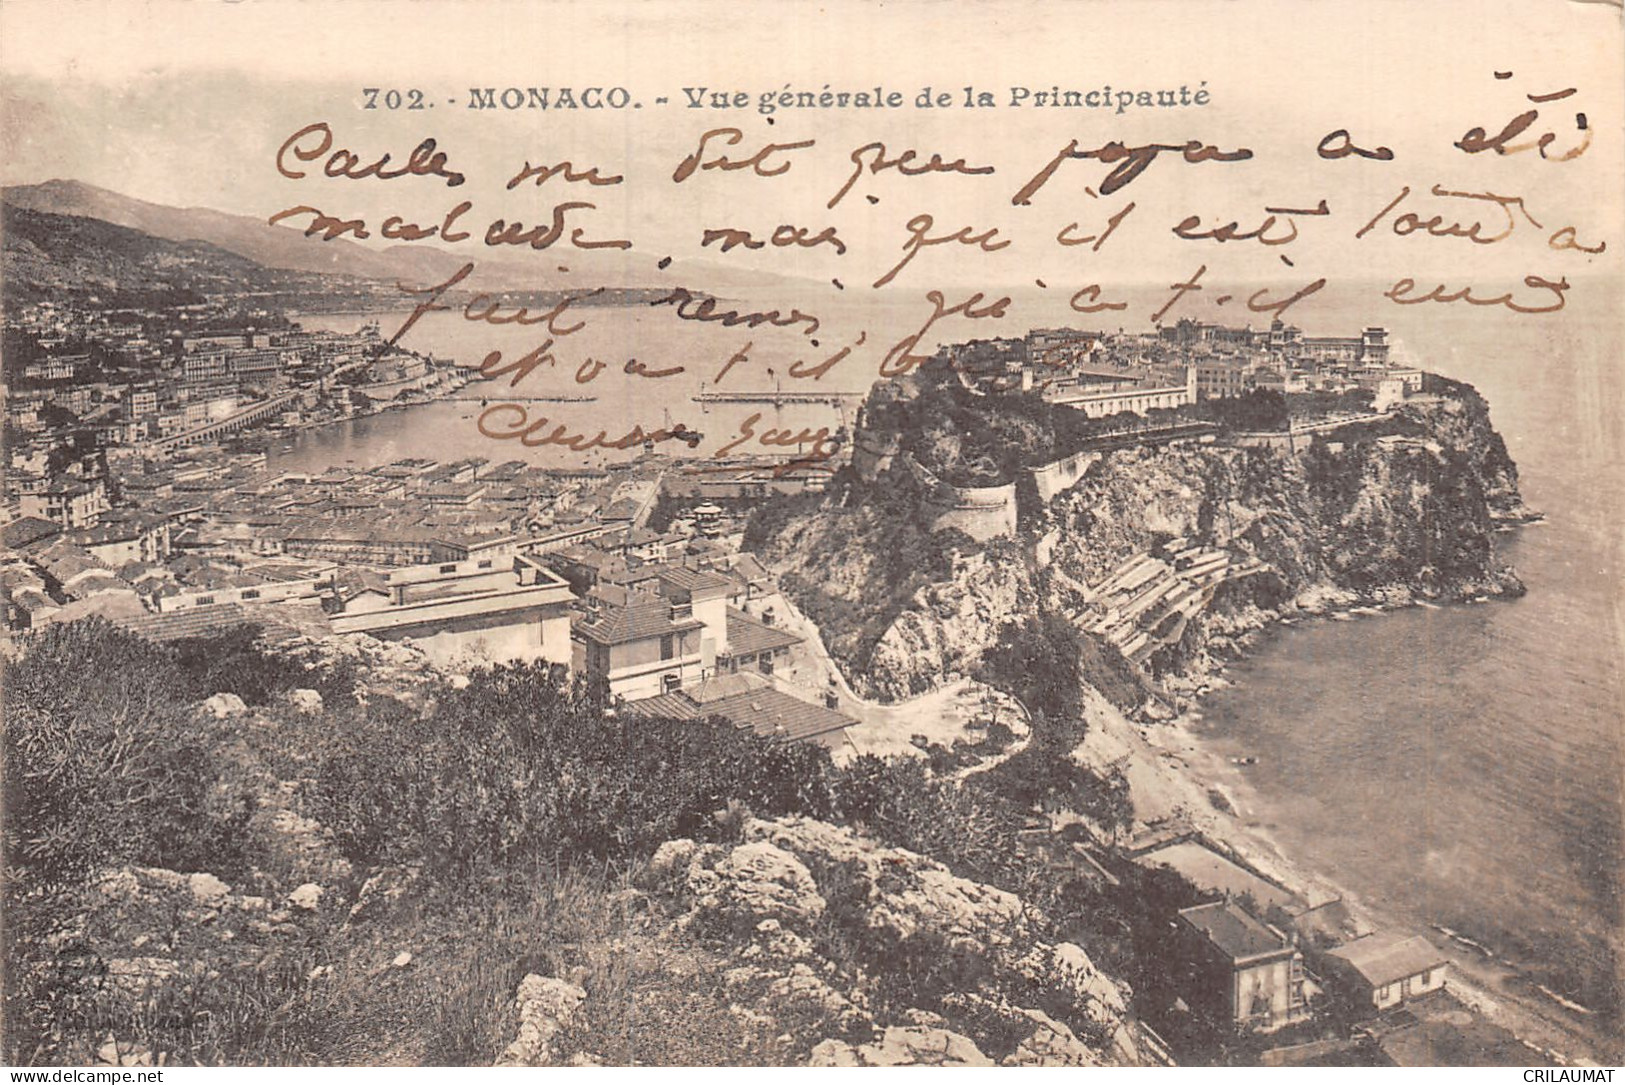 702. - MONACO. - Vue générale de la Principauté
me dit que papa a été
malade, mais qu'il est tout a
fait remis, qu'a t-il eut
et ou t-il
CRILAUMAT